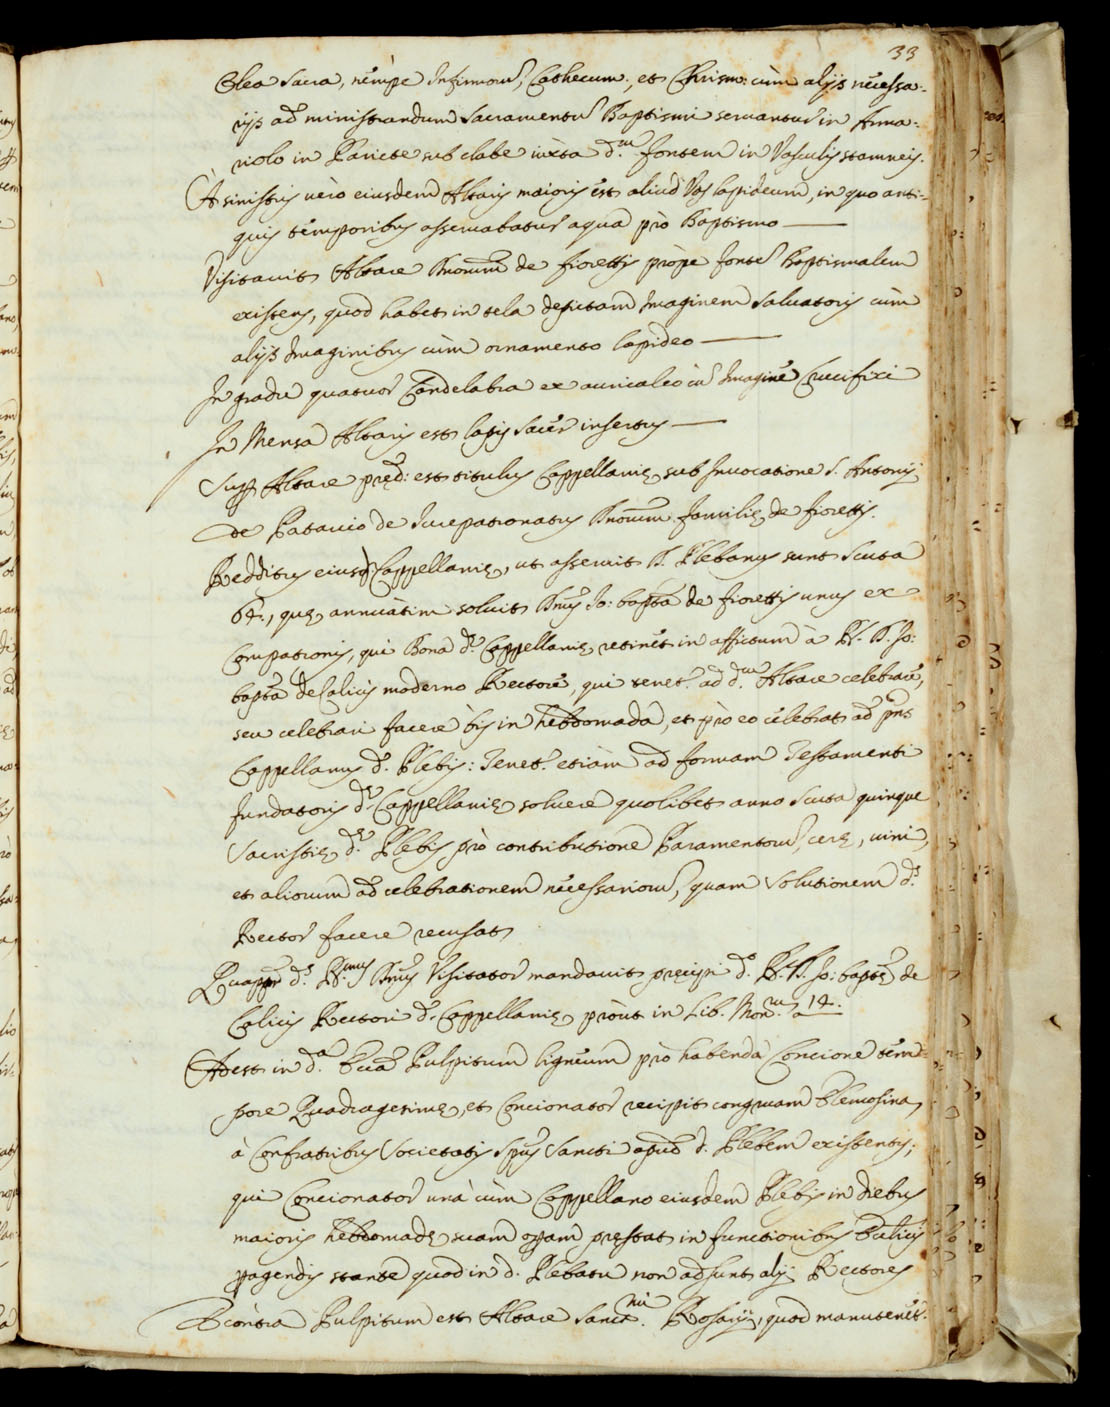 33
Olea sacra, nempe Infirmorũ, Cathecum:, et Chrism: cùm alijs necessa-
rijs ad ministrandum Sacramentũ Baptismi seruantur in Arma-
riolo in Pariete sub clabe iuxta d.um fontem in Vasculis stamneis.
A sinistris uèro eiusdem Altaris maioris est aliud Vas lapideum, in quo anti-
quis temporibus asseruabatur aqua prò Baptismo
Visitauit Altare Dnorum de fiorettis pròpe fontẽ Baptismalem
existens, quod habet in tela depictam Imaginem Saluatoris cùm
alijs Imaginibus cùm ornamento lapideo
In gradu quatuor Candelabra ex auricalco cũ Imaginẽ Crucifixi
In Mensa Altaris est lapis sacer insertus
Supr Altare pręd: est titulus Cappellanię sub Inuocatione S. Antonij
de Patauio de Iurepatronatus Dnorum familię de fiorettis.
Redditus eiusd Cappellanię, ut asseruit D. Plebanus sunt Scuta
64., quę annuàtim soluit Dnus Io: bapta de fiorettis unus ex
Compatronis, qui Bona d.ę Cappellanię retinet in affictum à R. D. Io:
bapta de Calicis moderno Rectore, qui tenet.r ad d.um Altare celebrare,
seu celebrari facere bis in hebdomada, et prò eo celebrat ad pns
Cappellanus d. Plebis: Tenet.r etiàm ad formam Testamenti
fundatoris d.ę Cappellanię soluere quolibet anno Scuta quinque
Sacristię d.ę Plebis prò contributione Paramentorũ, cerę, uini,
et aliorum ad celebrationem necessariorũ, quam solutionem d.s
Rector facere recusat
Quapr d.s R.mus Dnus Visitator mandauit pręcipi d.o R. D. Io: baptę de
Calicis Rectori d.ę Cappellanię pròut in Lib. Mon.m a 14.
Adest in d.a Ecca Pulpitum ligneum prò habenda Concione tem-
pore Quadragesimę, et Concionator recipit congruam Elemosinã
à Confratribus Societatis Spus Sancti apud d. Plebem existentis;
qui Concionator unà cùm Cappellano eiusdem Plebis in diebus
maioris hebdomadę suam opam pręstat in functionibus Eccłicis
pagendis stante quod in d. Plebatu non adsunt alij Rectores
E còntra Pulpitum est Altare Sanct.mi Rosarij, quod manutenet.r